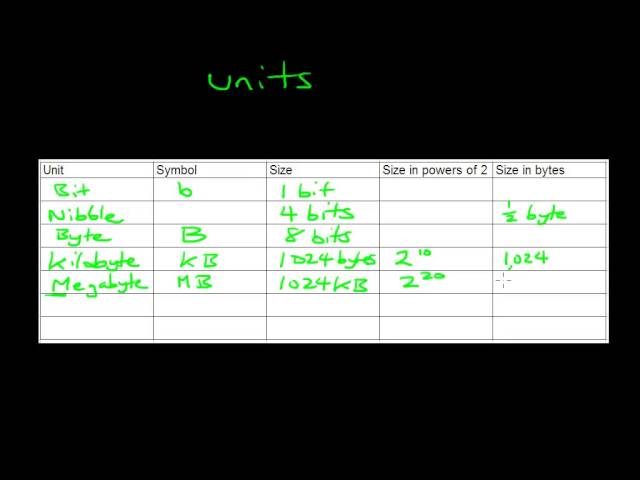 units
Unit Symbol Size Size in powers of 2 Size in bytes
Bit b 1 bit
Nibble 4 bits ½ byte
Byte B 8 bits
Kilobyte KB 1024 bytes 2¹⁰ 1,024
Megabyte MB 1024 KB 2²⁰